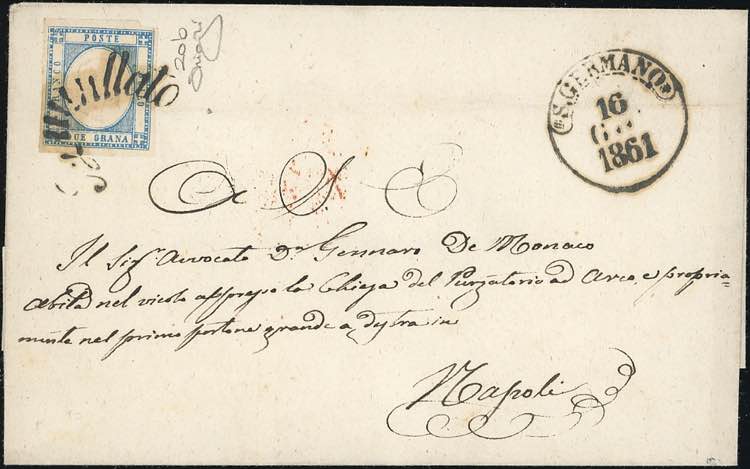 FRANCO
POSTE
DUE GRANA
Annullato
206
S. GERMANO
16
GIU
1861
A S E
Il Sigr. Avvocato Dn. Gennaro De Monaco
abita nel vicolo appresso la Chiesa del Purgatorio ad Arco, e propria-
mente nel primo portone grande a destra in
Napoli